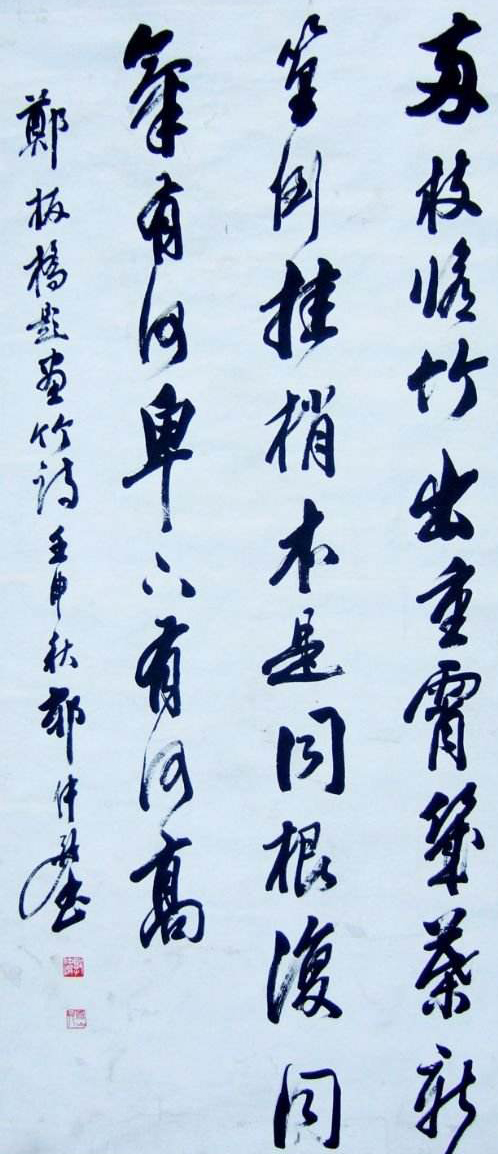 両枝脩竹出重霄幾葉新
篁倒挂梢本是同根復同
氣有何卑下有何高
鄭板橋題畫竹詩壬申秋 仲 書